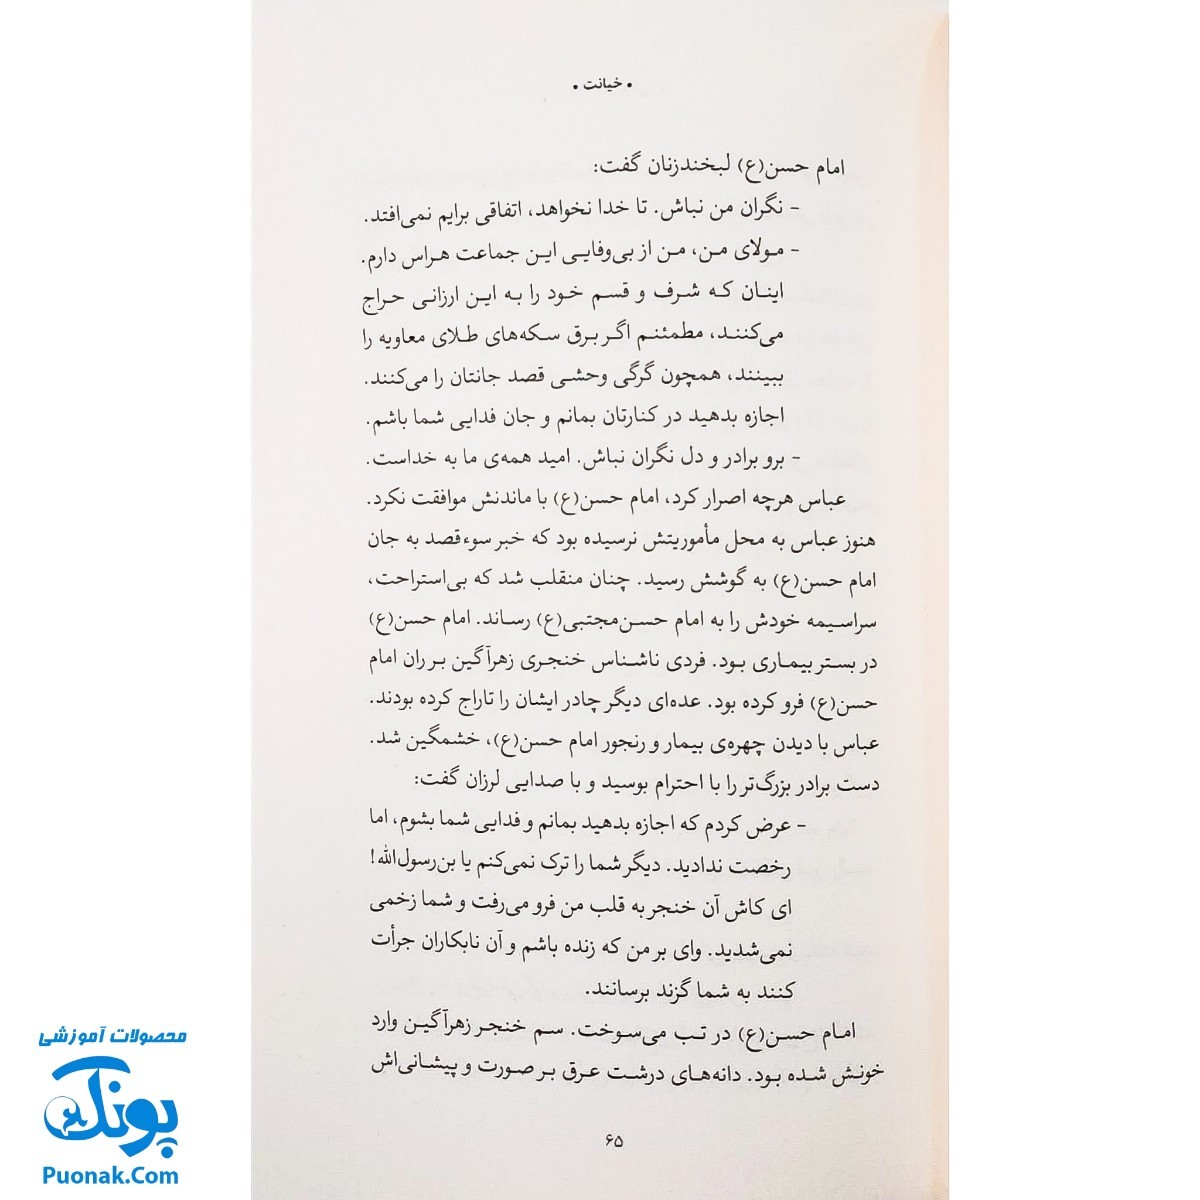 • خیانت •
امام حسن(ع) لبخندزنان گفت:
- نگران من نباش. تا خدا نخواهد، اتفاقی برایم نمی‌افتد.
- مولای من، من از بی‌وفایی این جماعت هراس دارم.
اینان که شرف و قسم خود را به این ارزانی حراج
می‌کنند، مطمئنم اگر برق سکه‌های طلای معاویه را
ببینند، همچون گرگی وحشی قصد جانتان را می‌کنند.
اجازه بدهید در کنارتان بمانم و جان فدایی شما باشم.
- برو برادر و دل نگران نباش. امید همه‌ی ما به خداست.
عباس هرچه اصرار کرد، امام حسن(ع) با ماندنش موافقت نکرد.
هنوز عباس به محل مأموریتش نرسیده بود که خبر سوءقصد به جان
امام حسن(ع) به گوشش رسید. چنان منقلب شد که بی‌استراحت،
سراسیمه خودش را به امام حسن‌مجتبی(ع) رساند. امام حسن(ع)
در بستر بیماری بود. فردی ناشناس خنجری زهرآگین بر ران امام
حسن(ع) فرو کرده بود. عده‌ای دیگر چادر ایشان را تاراج کرده بودند.
عباس با دیدن چهره‌ی بیمار و رنجور امام حسن(ع)، خشمگین شد.
دست برادر بزرگ‌تر را با احترام بوسید و با صدایی لرزان گفت:
- عرض کردم که اجازه بدهید بمانم و فدایی شما بشوم، اما
رخصت ندادید. دیگر شما را ترک نمی‌کنم یا بن‌رسول‌الله!
ای کاش آن خنجر به قلب من فرو می‌رفت و شما زخمی
نمی‌شدید. وای بر من که زنده باشم و آن نابکاران جرأت
کنند به شما گزند برسانند.
امام حسن(ع) در تب می‌سوخت. سم خنجر زهرآگین وارد
خونش شده بود. دانه‌های درشت عرق بر صورت و پیشانی‌اش
۶۵
محصولات آموزشی
پونک
Puonak.Com